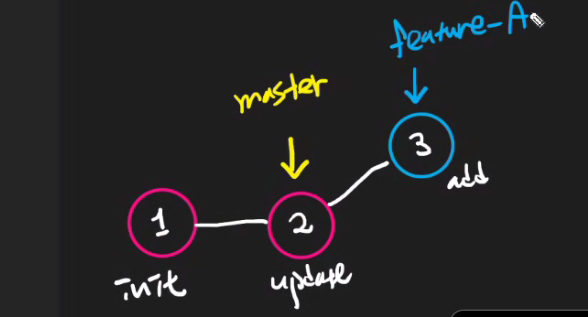 feature-A
master
3
add
1
2
init
update